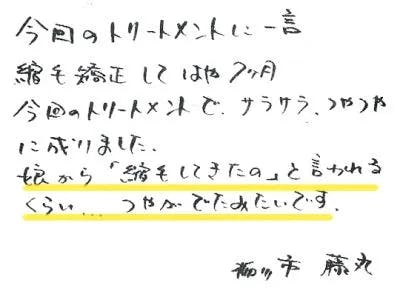 今回のトリートメントに一言
縮毛矯正してはや7ヶ月
今回のトリートメントで、サラサラ、つやつや
に成りました、
娘から「縮毛してきたの」と言われる
くらい... つやがでたみたいです。
市 藤丸